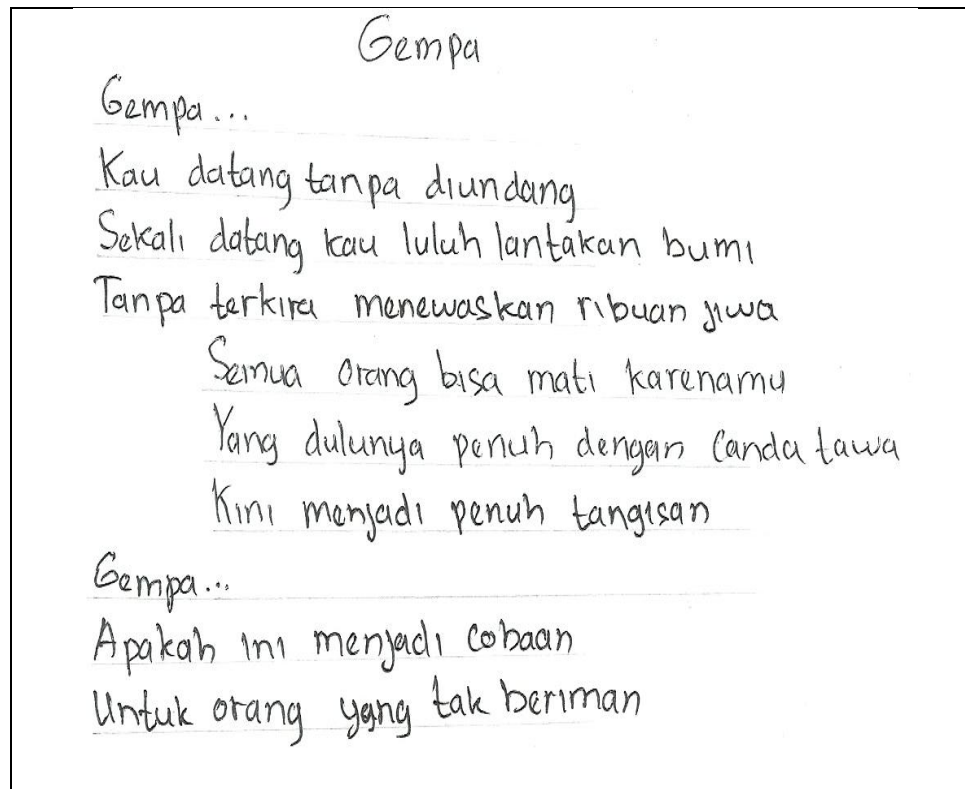 Gempa
Gempa...
Kau datang tanpa diundang
Sekali datang kau luluh lantakan bumi
Tanpa terkira menewaskan ribuan jiwa
Semua orang bisa mati karenamu
Yang dulunya penuh dengan canda tawa
Kini menjadi penuh tangisan
Gempa...
Apakah ini menjadi cobaan
Untuk orang yang tak beriman